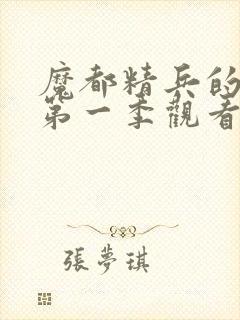 魔都精兵的
第一季觀看
張夢琪